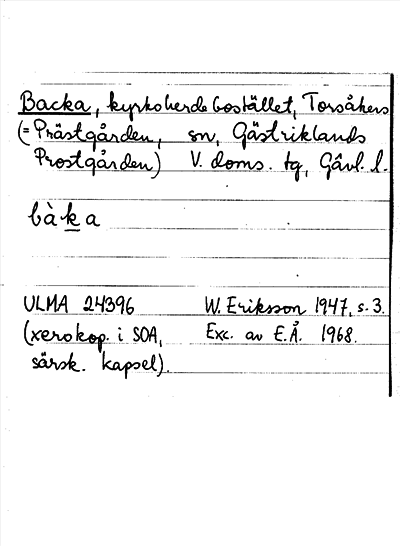 Backa, kyrkoherdebostället, Torsåkers
(= Prästgården, sn, Gästriklands
Prostgården) V. doms. tg, Gävl. l.
bàka
ULMA 24396 W. Eriksson 1947, s. 3.
(xerokop. i SOA, Exc. av E.Å. 1968.
särsk. kapsel).